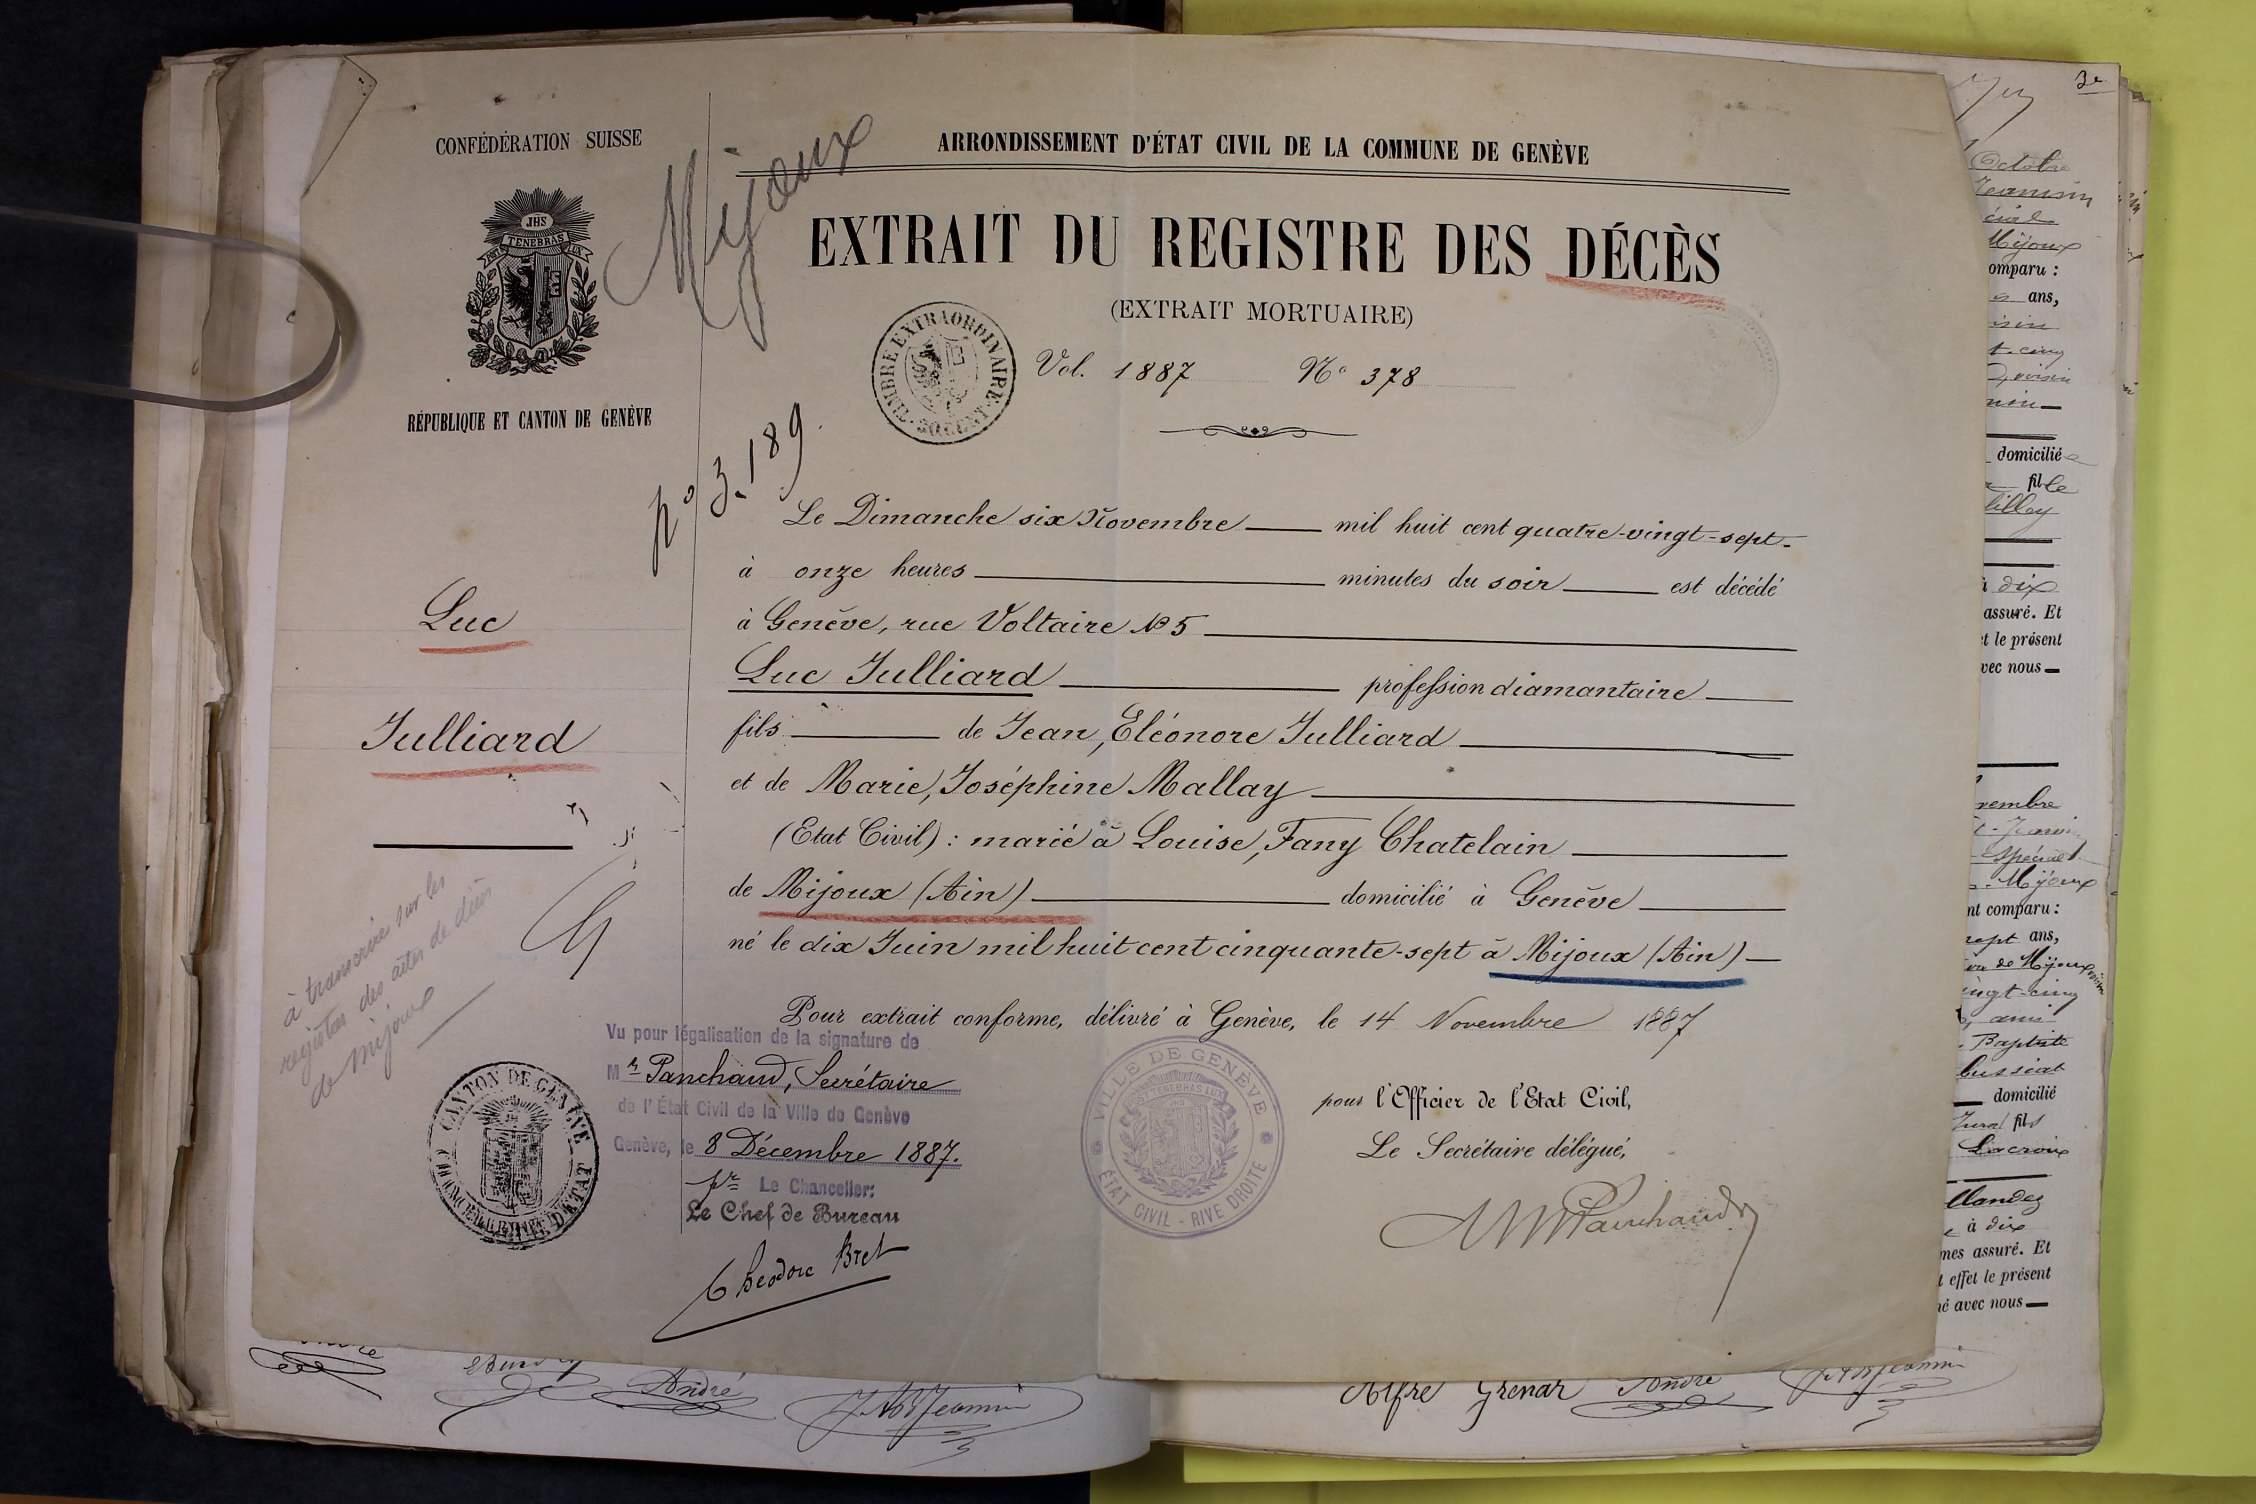 CONFÉDÉRATION SUISSE
JHS
POST TENEBRAS LUX
RÉPUBLIQUE ET CANTON DE GENÈVE
Mijoux
no 3.189.
Luc
Julliard
à transcrire sur les
registres des actes de décès
de Mijoux
ARRONDISSEMENT D'ÉTAT CIVIL DE LA COMMUNE DE GENÈVE
EXTRAIT DU REGISTRE DES DÉCÈS
(EXTRAIT MORTUAIRE)
TIMBRE EXTRAORDINAIRE
Vol. 1887 No 378
Le Dimanche six Novembre mil huit cent quatre-vingt-sept
à onze heures minutes du soir est décédé
à Genève, rue Voltaire No 5
Luc Julliard profession diamantaire
fils de Jean, Eléonore Julliard
et de Marie, Joséphine Mallay
(Etat Civil) : marié à Louise, Fany Chatelain
de Mijoux (Ain) domicilié à Genève
né le dix Juin mil huit cent cinquante-sept à Mijoux (Ain)
Pour extrait conforme, délivré à Genève, le 14 Novembre 1887
Vu pour légalisation de la signature de
Mr Panchaud, Secrétaire
de l'État Civil de la Ville de Genève
Genève, le 8 Décembre 1887.
pr Le Chancelier:
Le Chef de Bureau
Theodore Bret
CANTON DE GENÈVE
CHANCELLERIE D'ÉTAT
VILLE DE GENÈVE
POST TENEBRAS LUX
ÉTAT CIVIL - RIVE DROITE
pour l'Officier de l'Etat Civil,
Le Secrétaire délégué,
Panchaud
3e
Octobre
Jeannin
Mijoux
omparu :
ans,
t-cinq
domicilié
fille
à dix
assuré. Et
et le présent
vec nous
vembre
spécial
Mijoux
nt comparu :
sept ans,
de Mijoux
ingt-cinq
ami
Baptiste
domicilié
Jura fils
Lacroix
à dix
mes assuré. Et
effet le présent
né avec nous
André
Jeannin
Alfre Grenar André
Jeannin